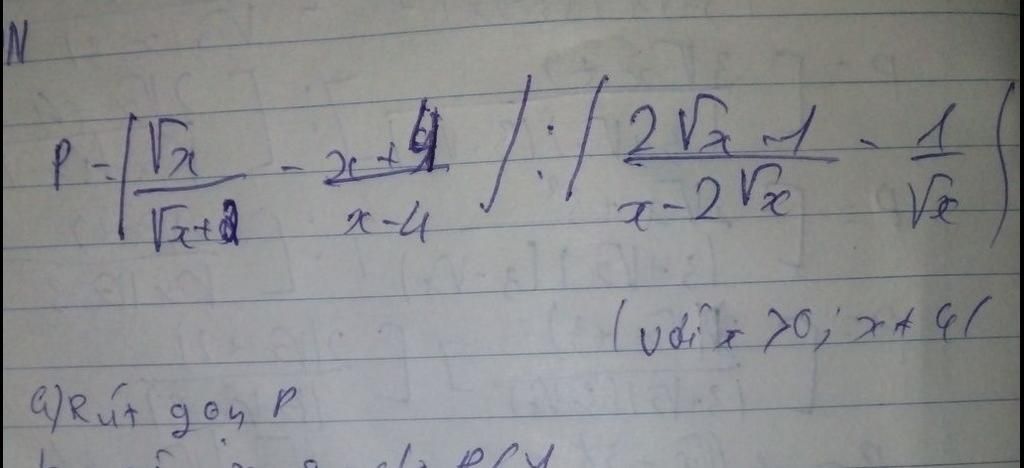 N
P = (√x/(√x+2) - (x+4)/(x-4)) : ((2√x-1)/(x-2√x) - 1/√x)
(với x > 0; x ≠ 4)
a) Rút gọn P